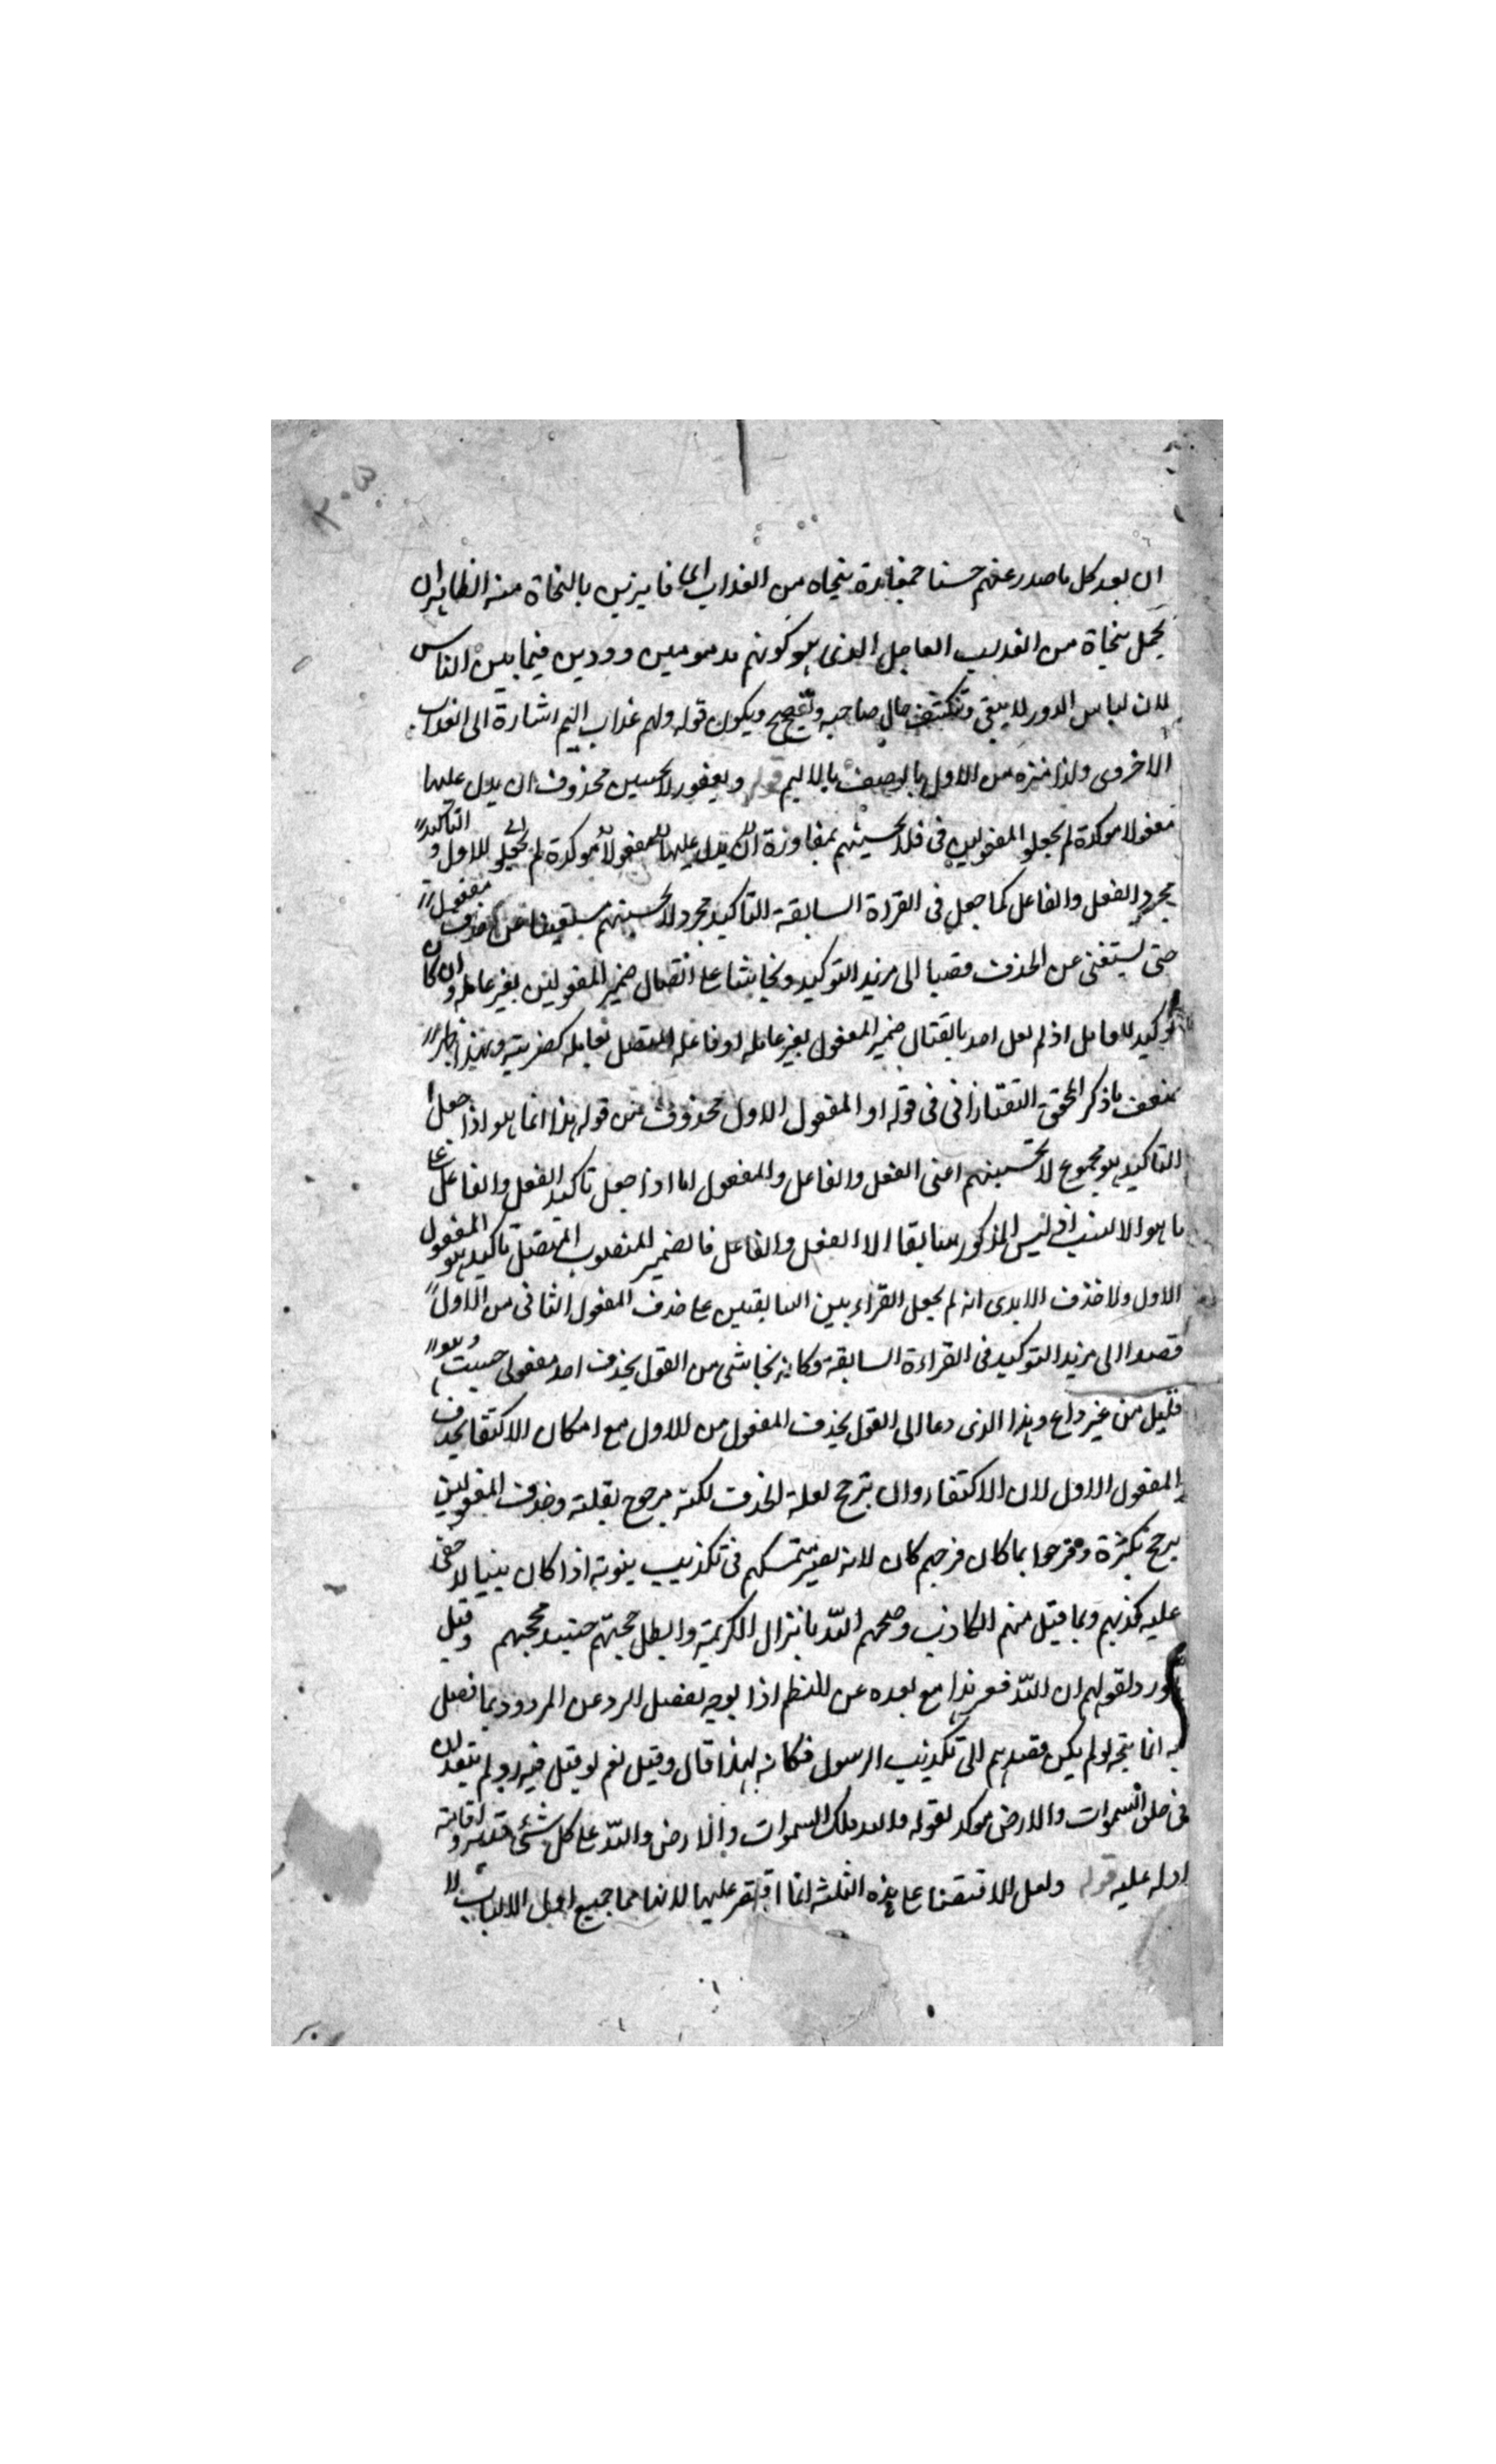 ان بعد كل ما صدر عنهم حسنا بمفازة بنجاة من العذاب اى فايزين بالنجاة منه الظاهر ان
يحمل بنجاة من العذاب العاجل الذى هو كونهم مذمومين مردودين فيما بين الناس
لان لباس الزور لا يبقى وتنكشف حال صاحبه وتفضح ويكون قوله ولهم عذاب اليم اشارة الى العذاب
الاخروى ولذا ميزه من الاول بالوصف بالاليم قوله ومفعولا يحسبن محذوفان يدل عليهما
مفعولا موكدة لم يجعلوا المفعولين فى فلا تحسبنهم بمفازة يدل عليهما مفعولا موكدة لم يجعل الاول و التاكيد
مجرد الفعل والفاعل كما جعل فى القراة السابقة التاكيد مجرد لا تحسبنهم مفعول
حتى يستغنى عن الحذف قصدا الى مزيد التوكيد وتحاشيا على اتصال ضمير المفعولين بغير عامله وان كان
توكيد للعامل اذ لم يقل احد باتصال ضمير المفعول بغير عامله او فاعله المتصل بعامله كضربته وبهذا ظهر
ضعف ما ذكر المحقق التفتازانى فى قوله او المفعول الاول محذوف من قوله هذا انما هو اذا جعل
التاكيد هو مجموع لا تحسبنهم اعنى الفعل والفاعل والمفعول اما اذا جعل تاكيد الفعل والفاعل على
ما هو الانسب اذ ليس المذكور سابقا الا الفعل والفاعل فالضمير المنصوب المتصل بالتاكيد هو المفعول
الاول ولا حذف الا يرى انه لم يجعل القراءتين السابقتين على حذف المفعول الثانى من الاول
قصدا الى مزيد التوكيد فى القراءة السابقة وكانه تحاشى من القول بحذف احد مفعولى حسبت وهو
قليل من غير داع وهذا الذى دعا الى القول بحذف المفعول من الاول مع امكان الاكتفا بحذف
المفعول الاول لان الاكتفاء وان يترجح لعلة الحذف لكنه مرجوح بقلته وحذف المفعولين
يرجح بكثرة وفرحوا بما كان فرحهم كان لانه يصير متمسكهم فى تكذيب بنبوته اذا كان بينا لا خفى
عليه كذبهم وبما قيل منهم الكاذب وفضحهم الله بانزال الكريمة وابطل حجتهم وقيل
هو رد لقولهم ان الله فقير هذا مع بعده عن النظم اذا يوجه لفصل الرد عن المردود بما فصل
به انما يتجه لو لم يكن قصدهم الى تكذيب الرسول فكانه لهذا قال وقيل نعم لو قيل فيه رد لم يبعد لان
فى خلق السموات والارض موكد لقوله ولله ملك السموات والارض والله على كل شئ قدير واقامة
ادله عليه قوله ولعل الاقتصار على هذه الثلثة انما اقتصر عليها لانها مما جميع اهل الالباب لا